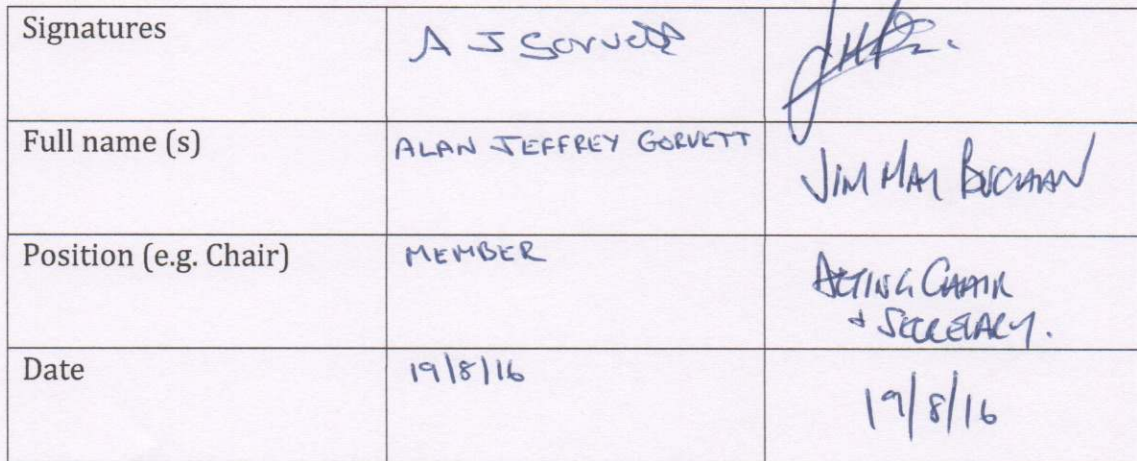 Signatures A J Gorvett
Full name (s) ALAN JEFFREY GORVETT JIM MAY BUCHANAN
Position (e.g. Chair) MEMBER ACTING CHAIR
& SECRETARY.
Date 19/8/16 19/8/16